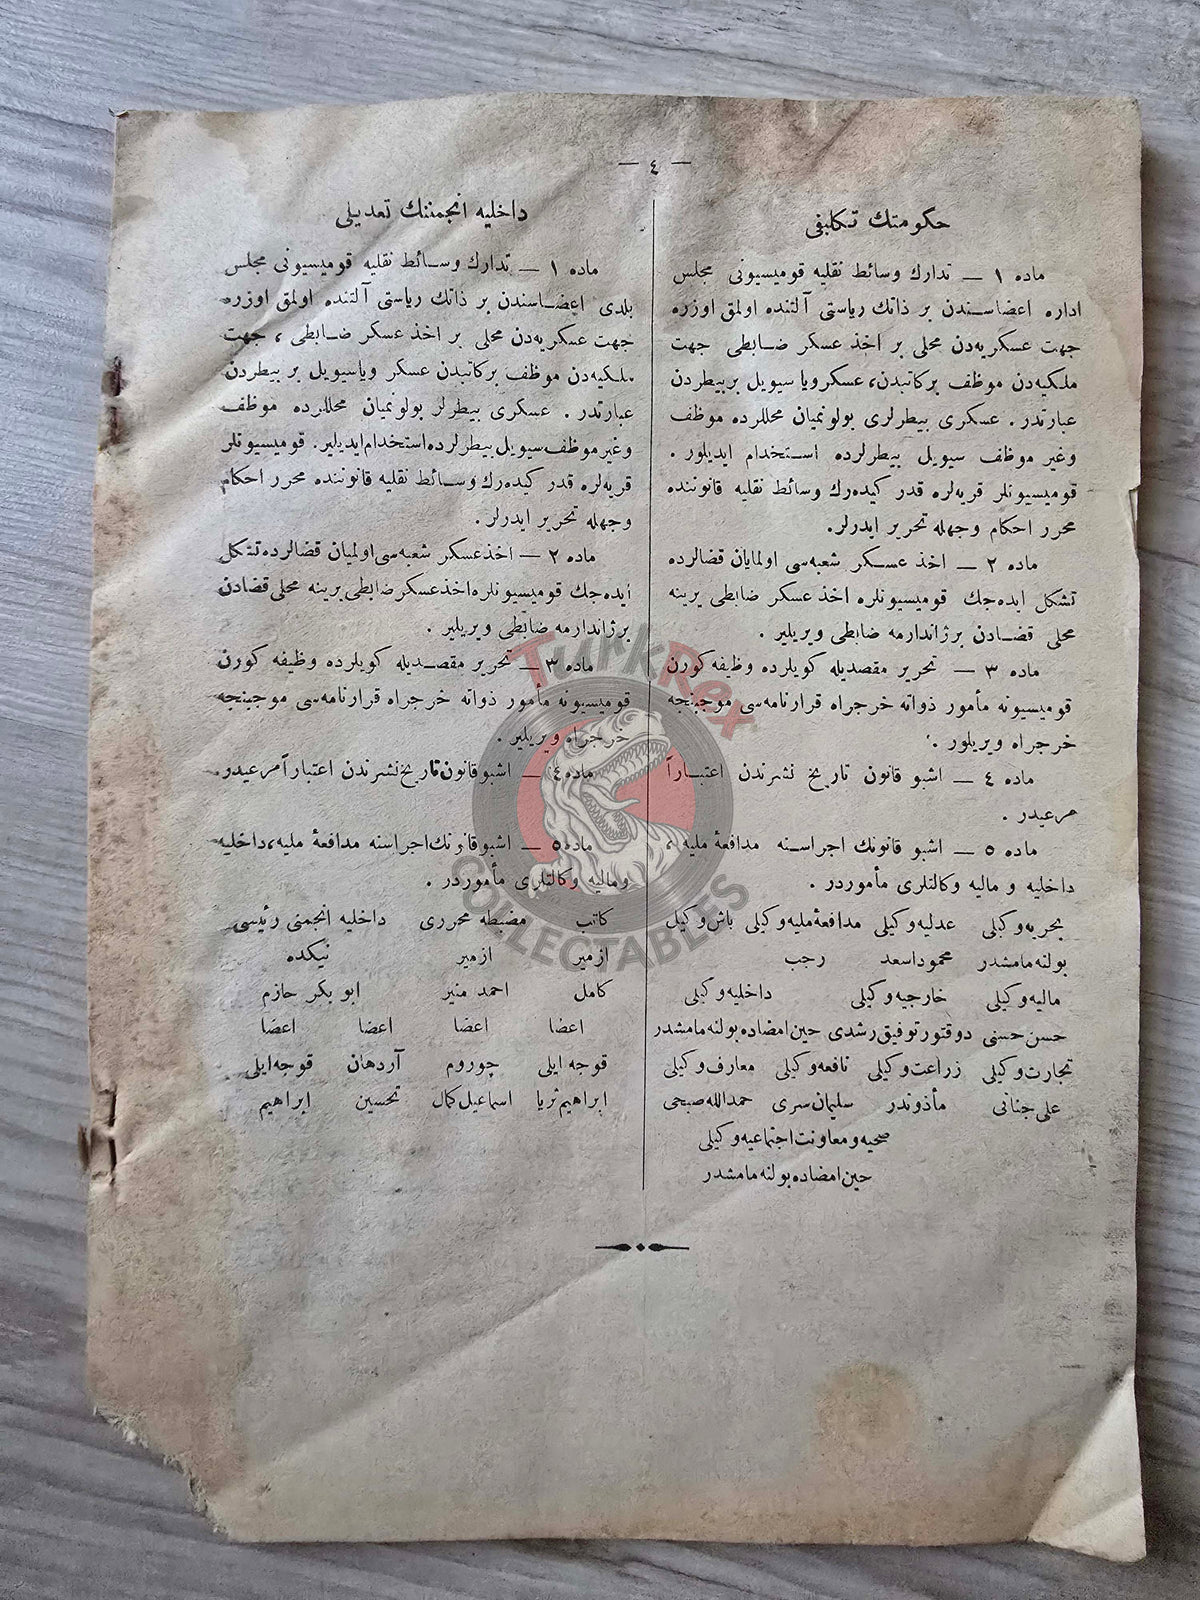 — ٤ —
حكومتك تكليفى
ماده ١ — تدارك وسائط نقليه قوميسيونى مجلس
اداره اعضاسندن بر ذاتك رياستى آلتنده اولمق اوزره
جهت عسكريه‌دن محلى بر اخذ عسكر ضابطى جهت
ملكيه‌دن موظف بركاتبدن، عسكرويا سيويل بربيطردن
عبارتدر . عسكرى بيطرلرى بولونميان محللرده موظف
وغير موظف سيويل بيطرلرده استخدام ايديلور .
قوميسيونلر قريه‌لره قدر كيده‌رك وسائط نقليه قانوننده
محرر احكام وجهله تحرير ايدرلر.
ماده ٢ — اخذ عسكر شعبه‌سى اولمايان قضالرده
تشكل ايده‌جك قوميسيونلره اخذ عسكر ضابطى يرينه
محلى قضادن برژاندارمه ضابطى ويريلير .
ماده ٣ — تحرير مقصديله كويلرده وظيفه كورن
قوميسيونه مأمور ذواته خرجراه قرارنامه‌سى موجبنجه
خرجراه ويريلور .
ماده ٤ — اشبو قانون تاريخ نشرندن اعتباراً
مرعيدر .
ماده ٥ — اشبو قانونك اجراسنه مدافعهٔ مليه ،
داخليه و ماليه وكالتلرى مأموردر .
بحريه‌وكيلى عدليه‌وكيلى مدافعهٔ مليه‌وكيلى باش‌وكيل
بولنه‌مامشدر محمود اسعد رجب
ماليه‌وكيلى خارجيه‌وكيلى داخليه‌وكيلى
حسن حسنى دوقتور توفيق رشدى حين امضاده بولنه‌مامشدر
تجارت‌وكيلى زراعت‌وكيلى نافعه‌وكيلى معارف‌وكيلى
على جنانى مأذوندر سليمان سرى حمدالله صبحى
صحيه ومعاونت اجتماعيه وكيلى
حين امضاده بولنه‌مامشدر
داخليه انجمننك تعديلى
ماده ١ — تدارك وسائط نقليه قوميسيونى مجلس
بلدى اعضاسندن بر ذاتك رياستى آلتنده اولمق اوزره
جهت عسكريه‌دن محلى بر اخذ عسكر ضابطى ، جهت
ملكيه‌دن موظف بركاتبدن عسكر وياسيويل بر بيطردن
عبارتدر . عسكرى بيطرلر بولونميان محللرده موظف
وغير موظف سيويل بيطرلرده استخدام ايديلير. قوميسيونلر
قريه‌لره قدر كيده‌رك وسائط نقليه قانوننده محرر احكام
وجهله تحرير ايدرلر .
ماده ٢ — اخذعسكر شعبه‌سى اولميان قضالرده تشكل
ايده‌جك قوميسيونلره اخذعسكر ضابطى يرينه محلى قضادن
برژاندارمه ضابطى ويريلير .
ماده ٣ — تحرير مقصديله كويلرده وظيفه كورن
قوميسيونه مأمور ذواته خرجراه قرارنامه‌سى موجبنجه
خرجراه ويريلير .
ماده ٤ — اشبوقانون تاريخ نشرندن اعتباراً مرعيدر.
ماده ٥ — اشبوقانونك اجراسنه مدافعهٔ مليه، داخليه
وماليه وكالتلرى مأموردر .
كاتب مضبطه محررى داخليه انجمنى رئيسى
ازمير ازمير نيكده
كامل احمد منير ابو بكر حازم
اعضا اعضا اعضا اعضا
قوجه ايلى چوروم آردهان قوجه ايلى
ابراهيم ثريا اسماعيل كمال تحسين ابراهيم
TurkRex
COLLECTABLES